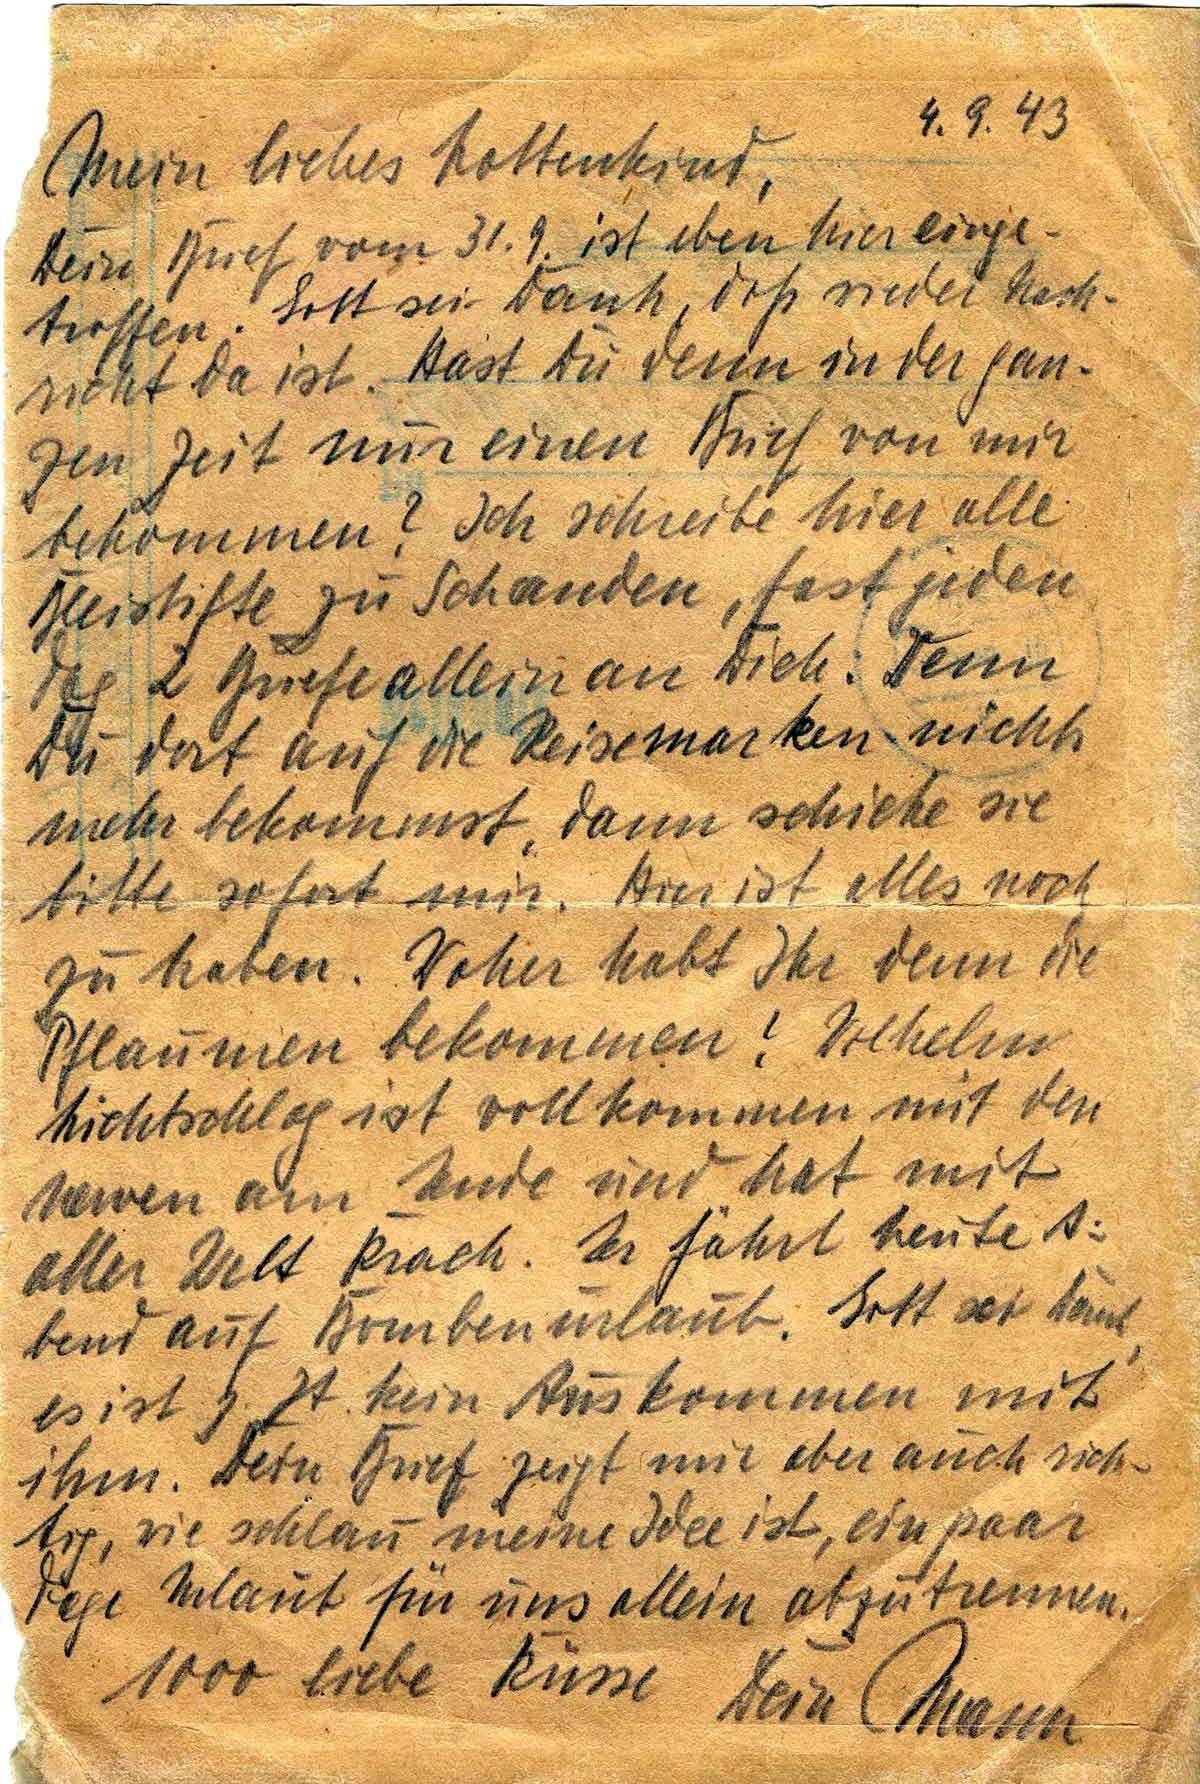 4. 9. 43
Mein liebes Lottenkind,
Dein Brief vom 31. 9. ist eben hier einge-
troffen. Gott sei Dank, daß wieder Nach-
richt da ist. Hast Du denn in der gan-
zen Zeit nur einen Brief von mir
bekommen? Ich schreibe hier alle
Bleistifte zu Schanden, fast jeden
Tag 2 Briefe allein an Dich. Wenn
Du dort auf die Reisemarken nichts
mehr bekommst, dann schicke sie
bitte sofort mir. Hier ist alles noch
zu haben. Woher habt Ihr denn die
Pflaumen bekommen? Wilhelm
Lichtschlag ist vollkommen mit den
Nerven am Ende und hat mit
aller Welt Krach. Er fährt heute A-
bend auf Bombenurlaub. Gott sei Dank,
es ist z. Zt. kein Auskommen mit
ihm. Dein Brief zeigt mir aber auch rich-
tig, wie schlau meine Idee ist, ein paar
Tage Urlaub für uns allein abzutrennen.
1000 liebe Küsse Dein Mann